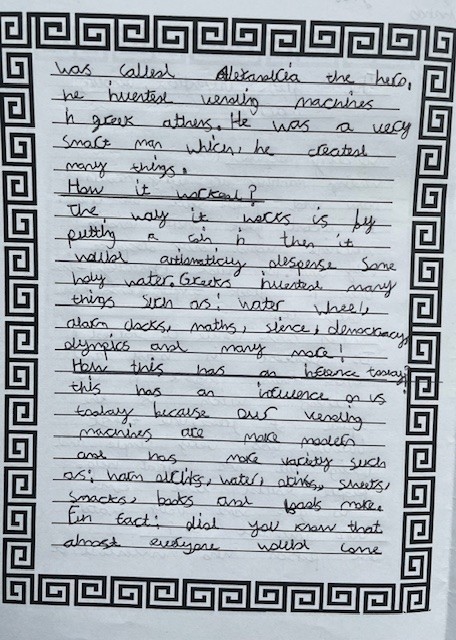 was called Alexandria the hero.
he invented vending machines
in greek athens. He was a very
smart man which, he created
many things.
How it worked?
The way it works is by
putting a coin in then it
would automaticly despense some
holy water. Greeks invented many
things such as: water wheel,
alarm clocks, maths, sience, democracay,
olympics and many more!
How this has an infuence today?
this has an infuuence on us
today because our vending
machines are more modern
and has more variety such
as: warm drinks, water, drinks, sweets,
snacks, books and loads more.
Fun fact: did you know that
almost everyone would come